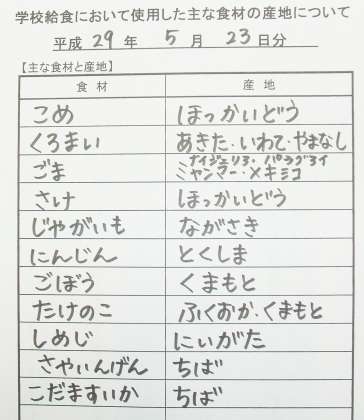 学校給食において使用した主な食材の産地について
平成 29 年 5 月 23 日分
【主な食材と産地】
食材 産地
こめ ほっかいどう
くろまい あきた・いわて・やまなし
ごま ナイジェリア・パラグアイ ミャンマー・メキシコ
さけ ほっかいどう
じゃがいも ながさき
にんじん とくしま
ごぼう くまもと
たけのこ ふくおか・くまもと
しめじ にいがた
さやいんげん ちば
こだますいか ちば